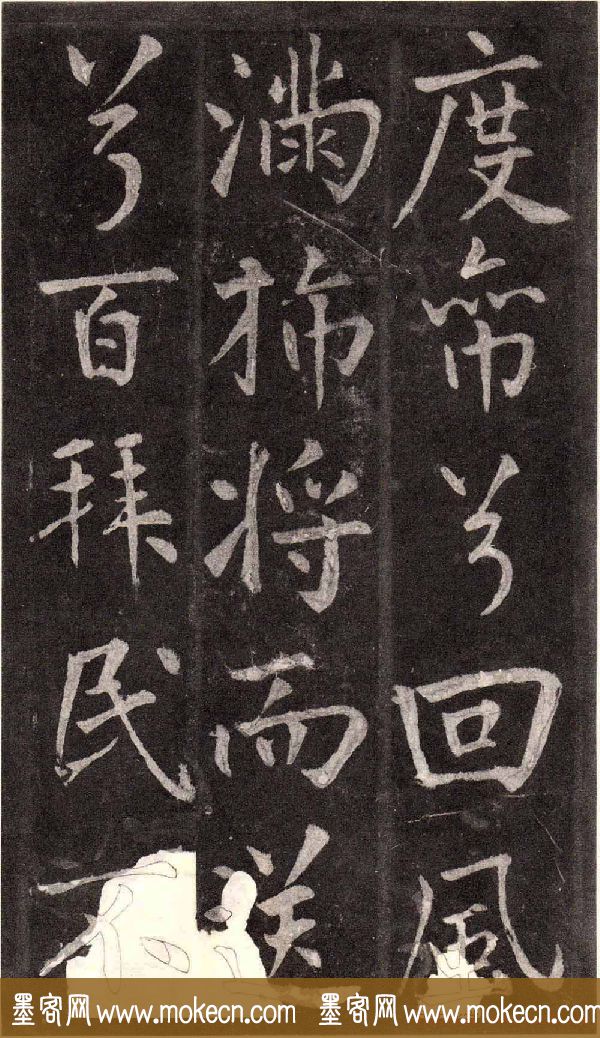 度帝兮回風
滿旆將而送
兮百拜民不
墨客网 www.mokecn.com 墨客网 www.mokecn.com